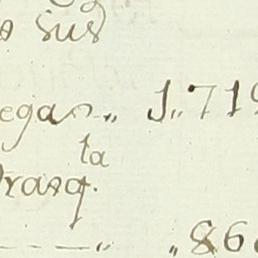 sus
egas.,, 1,,719
ta
rasq.
,, ,,86